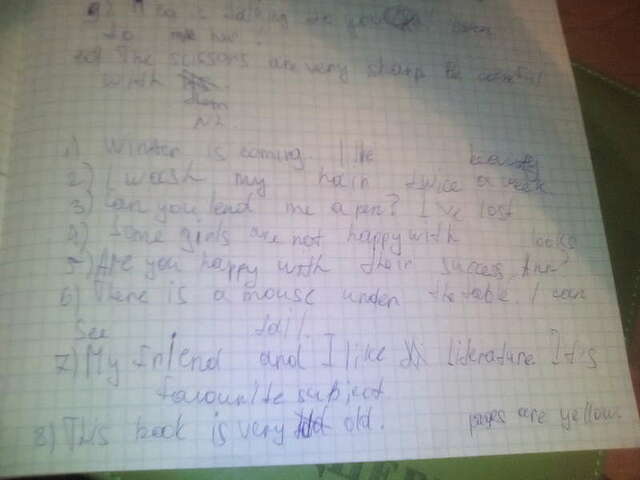 9) talking to you. Listen
to me her.
10) The scissors are very sharp. Be careful
with them
N2.
1) Winter is coming. I like beauty
2) I wash my hair twice a week
3) Can you lend me a pen? I've lost
4) Some girls are not happy with looks
5) Are you happy with their success, Ann?
6) There is a mouse under the table. I can
see tail.
7) My friend and I like literature. It is
favourite subject.
8) This book is very old. pages are yellow